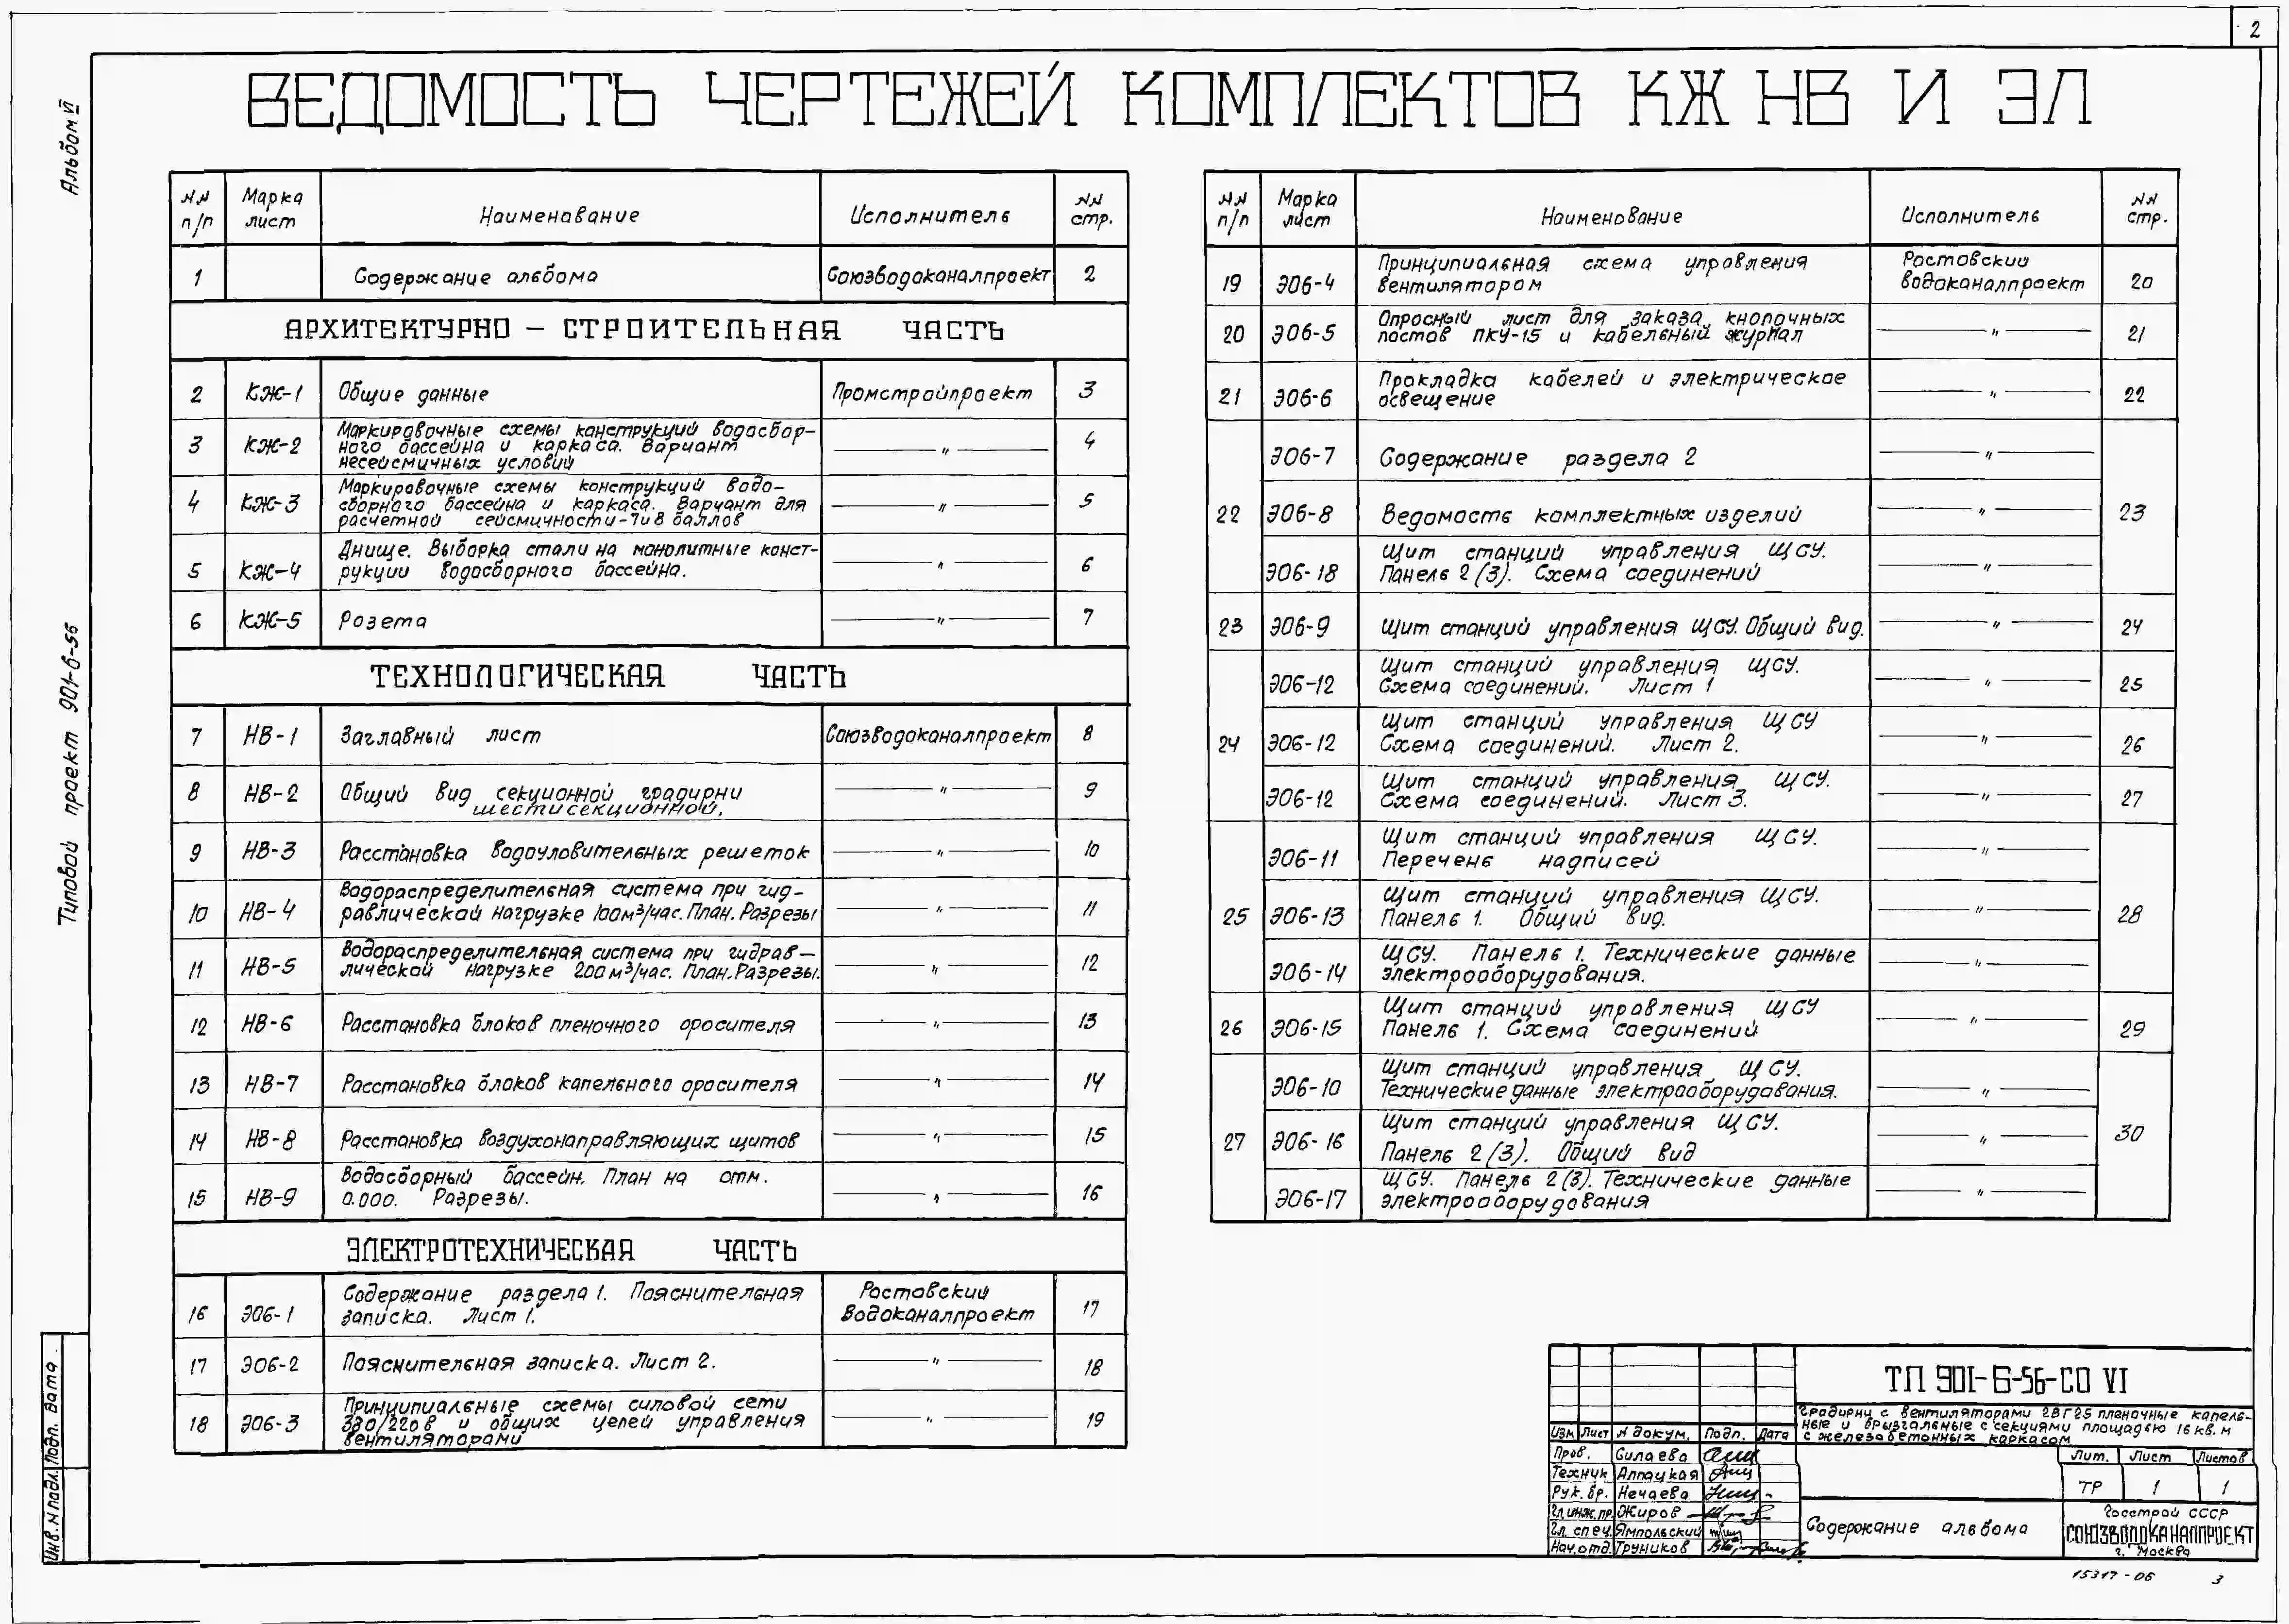 2
Альбом VI
Типовой проект 901-6-56
Инв. N подл. Подп. Дата
ВЕДОМОСТЬ ЧЕРТЕЖЕЙ КОМПЛЕКТОВ КЖ НВ И ЭЛ
NN п/п Марка лист Наименование Исполнитель NN стр.
1 Содержание альбома Союзводоканалпроект 2
АРХИТЕКТУРНО – СТРОИТЕЛЬНАЯ ЧАСТЬ
2 КЖ-1 Общие данные Промстройпроект 3
3 КЖ-2 Маркировочные схемы конструкций водосбор-
ного бассейна и каркаса. Вариант
несейсмичных условий —"— 4
4 КЖ-3 Маркировочные схемы конструкций водо-
сборного бассейна и каркаса. Вариант для
расчетной сейсмичности-7и8 баллов —"— 5
5 КЖ-4 Днище. Выборка стали на монолитные конст-
рукции водосборного бассейна. —"— 6
6 КЖ-5 Розета —"— 7
ТЕХНОЛОГИЧЕСКАЯ ЧАСТЬ
7 НВ-1 Заглавный лист Союзводоканалпроект 8
8 НВ-2 Общий вид секционной градирни
шестисекционной. —"— 9
9 НВ-3 Расстановка водоуловительных решеток —"— 10
10 НВ-4 Водораспределительная система при гид-
равлической нагрузке 100м³/час. План. Разрезы —"— 11
11 НВ-5 Водораспределительная система при гидрав-
лической нагрузке 200м³/час. План. Разрезы. —"— 12
12 НВ-6 Расстановка блоков пленочного оросителя —"— 13
13 НВ-7 Расстановка блоков капельного оросителя —"— 14
14 НВ-8 Расстановка воздухонаправляющих щитов —"— 15
15 НВ-9 Водосборный бассейн. План на отм.
0.000. Разрезы. —"— 16
ЭЛЕКТРОТЕХНИЧЕСКАЯ ЧАСТЬ
16 ЭО6-1 Содержание раздела 1. Пояснительная
записка. Лист 1. Ростовский
Водоканалпроект 17
17 ЭО6-2 Пояснительная записка. Лист 2. —"— 18
18 ЭО6-3 Принципиальные схемы силовой сети
380/220в и общих цепей управления
вентиляторами —"— 19
NN п/п Марка лист Наименование Исполнитель NN стр.
19 ЭО6-4 Принципиальная схема управления
вентилятором Ростовский
водоканалпроект 20
20 ЭО6-5 Опросный лист для заказа кнопочных
постов ПКУ-15 и кабельный журнал —"— 21
21 ЭО6-6 Прокладка кабелей и электрическое
освещение —"— 22
ЭО6-7 Содержание раздела 2 —"—
22 ЭО6-8 Ведомость комплектных изделий —"— 23
ЭО6-18 Щит станций управления ЩСУ.
Панель 2(3). Схема соединений —"—
23 ЭО6-9 Щит станций управления ЩСУ. Общий вид. —"— 24
ЭО6-12 Щит станций управления ЩСУ.
Схема соединений. Лист 1 —"— 25
24 ЭО6-12 Щит станций управления ЩСУ
Схема соединений. Лист 2. —"— 26
ЭО6-12 Щит станций управления ЩСУ.
Схема соединений. Лист 3. —"— 27
ЭО6-11 Щит станций управления ЩСУ.
Перечень надписей —"—
25 ЭО6-13 Щит станций управления ЩСУ.
Панель 1. Общий вид. —"— 28
ЭО6-14 ЩСУ. Панель 1. Технические данные
электрооборудования. —"—
26 ЭО6-15 Щит станций управления ЩСУ
Панель 1. Схема соединений —"— 29
ЭО6-10 Щит станций управления ЩСУ.
Технические данные электрооборудования. —"—
27 ЭО6-16 Щит станций управления ЩСУ.
Панель 2(3). Общий вид —"— 30
ЭО6-17 ЩСУ. Панель 2(3). Технические данные
электрооборудования —"—
ТП 901-6-56-СО VI
Градирни с вентиляторами 2ВГ25 пленочные капель-
ные и брызгальные с секциями площадью 16 кв. м
с железобетонных каркасом
Изм Лист N докум. Подп. Дата
Пров. Силаева
Техник Алпацкая
Рук. бр. Нечаева
Гл. инж. пр. Жиров
Гл. спец. Ямпольский
Нач. отд. Труников
Лит. Лист Листов
ТР 1 1
Содержание альбома
Госстрой СССР
СОЮЗВОДОКАНАЛПРОЕКТ
г. Москва
15317-06 3